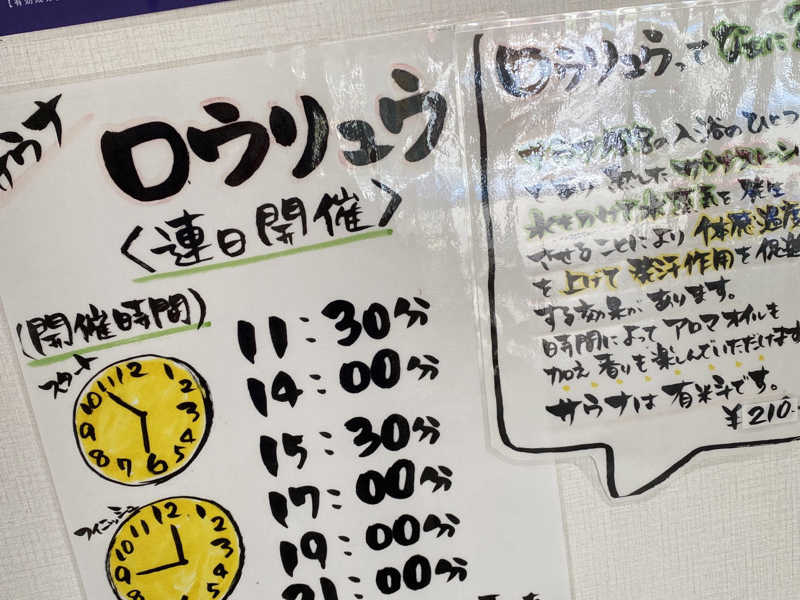 サウナ
ロウリュウ
〈連日開催〉
(開催時間)
スタート
11 12 1
10 2
9 3
8 4
7 6 5
フィニッシュ
11 12 1
10 2
9 3
8 4
11:30分
14:00分
15:30分
17:00分
19:00分
21:00分
ロウリュウって
の入浴のひとつ
を発生
させることにより 体感温度
を上げて 発汗作用を促進
する効果があります。
時間によって アロマオイルも
加え 香りも楽しんでいただけます
サウナは 有料です。
¥210.-